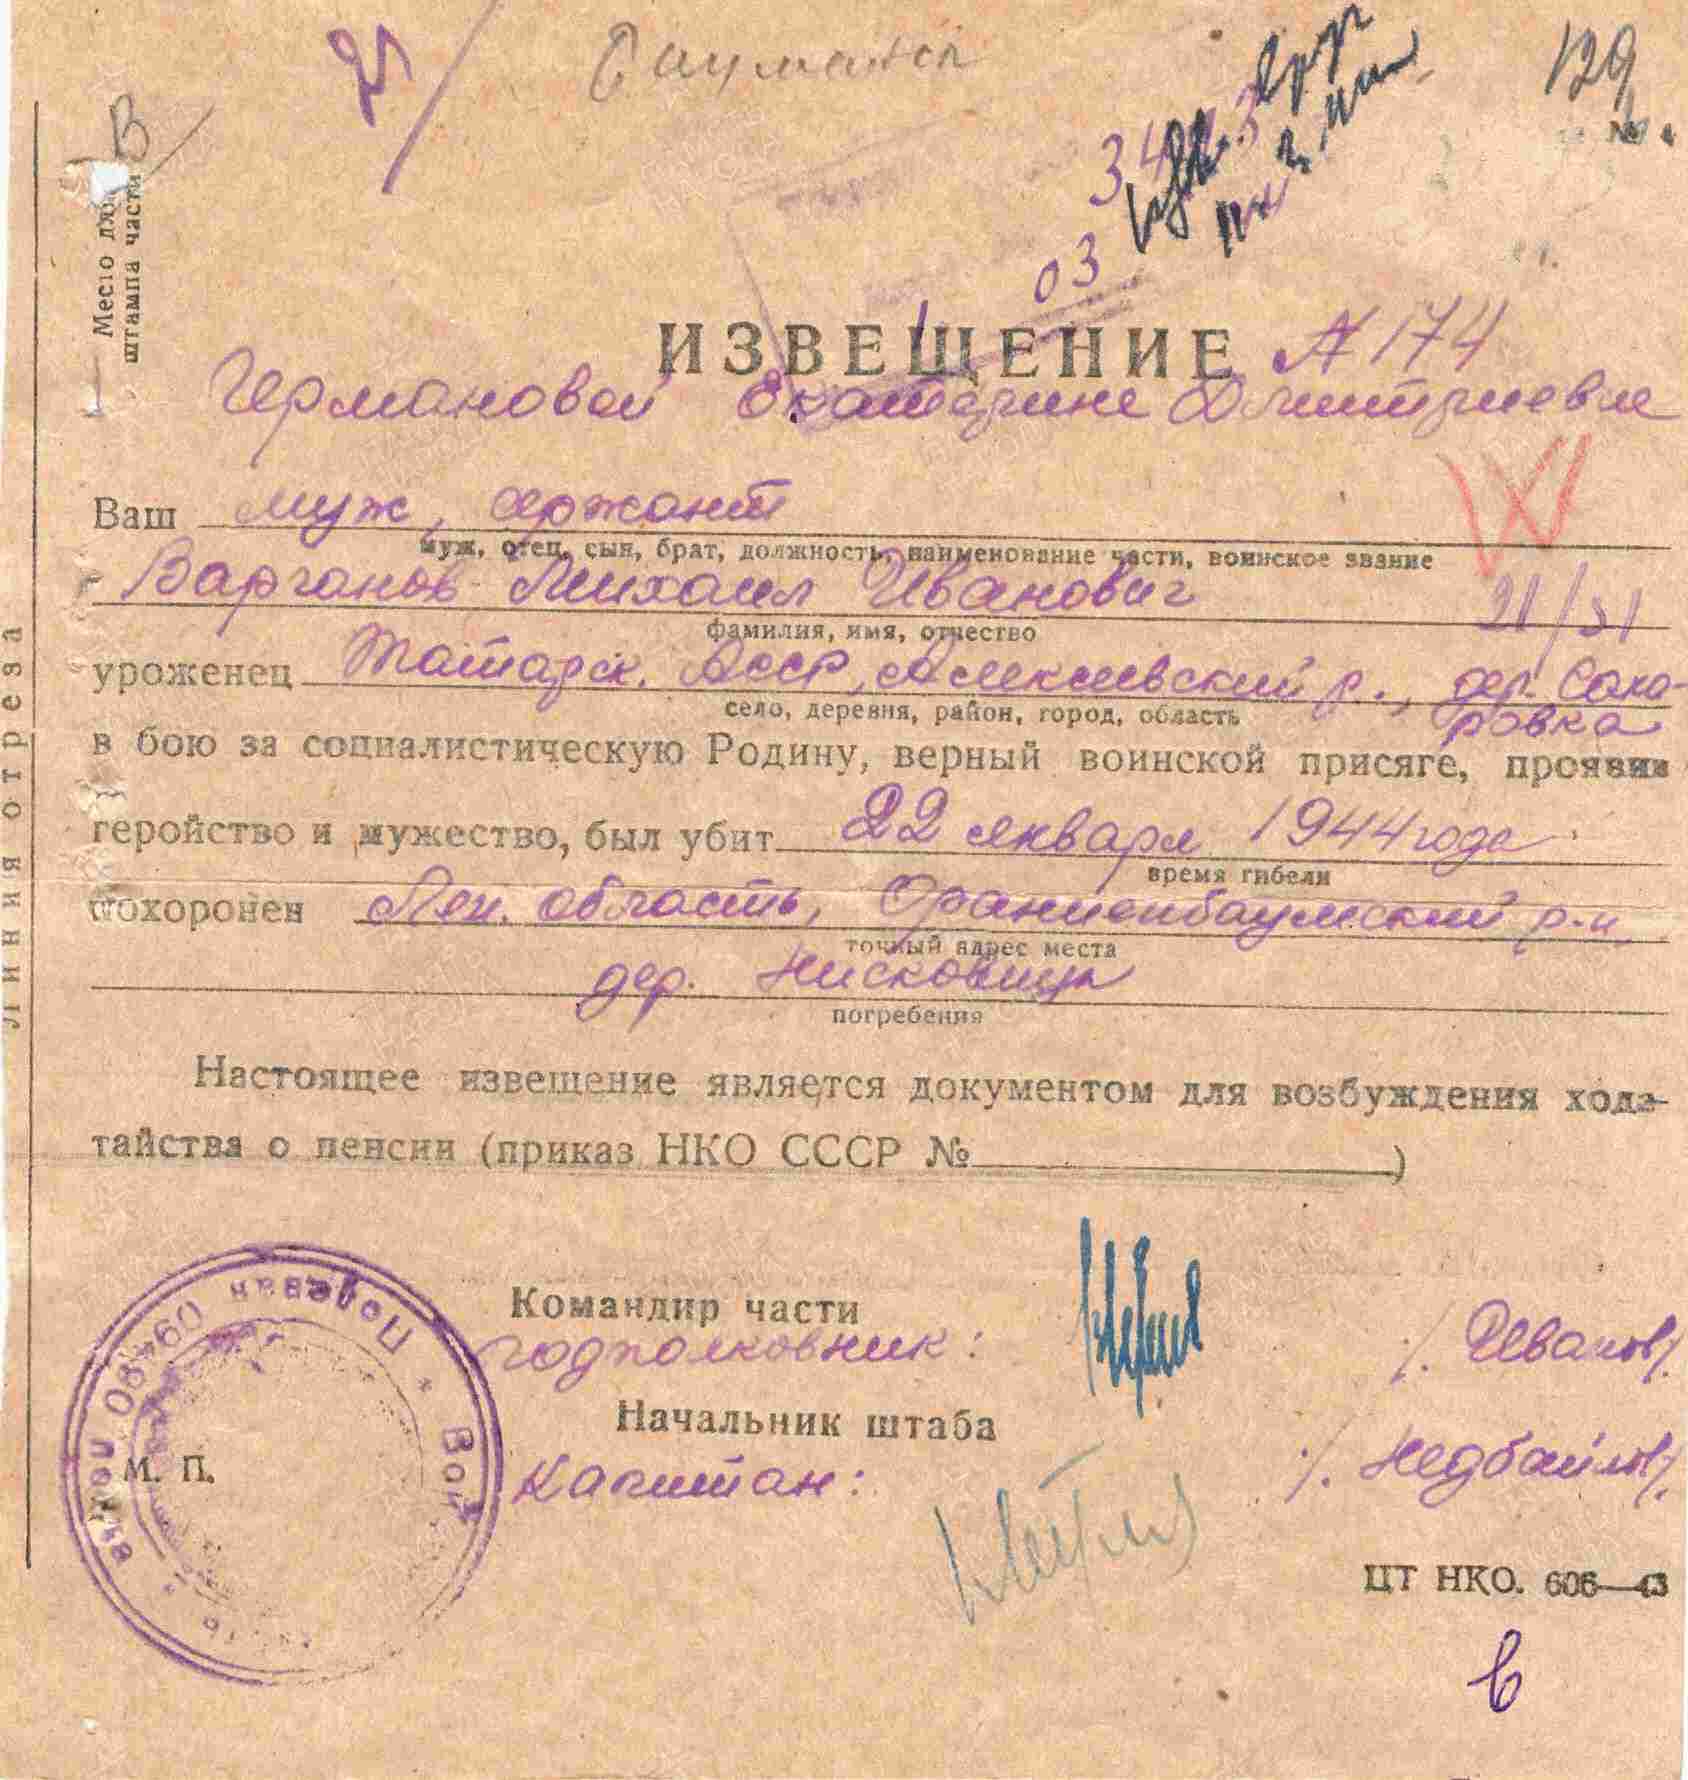 129
В
Место для
штампа части
03
ИЗВЕЩЕНИЕ № 174
Германовой Екатерине Дмитриевне
Ваш муж, сержант
муж, отец, сын, брат, должность, наименование части, воинское звание
Варганов Михаил Иванович
фамилия, имя, отчество
уроженец Татарск. АССР, Алексеевский р., дер. Сака-
ровка
село, деревня, район, город, область
в бою за социалистическую Родину, верный воинской присяге, проявив
геройство и мужество, был убит 22 января 1944 года
время гибели
похоронен Лен. область, Ораниенбаумский р-н
точный адрес места
дер. Нисковицы
погребения
Настоящее извещение является документом для возбуждения хода-
тайства о пенсии (приказ НКО СССР № )
Командир части
подполковник: /. Иванов/.
Начальник штаба
М. П.
Капитан: /. Недбайлов/.
Полевая почта 09480
ЦТ НКО. 606—43
в
Линия отреза